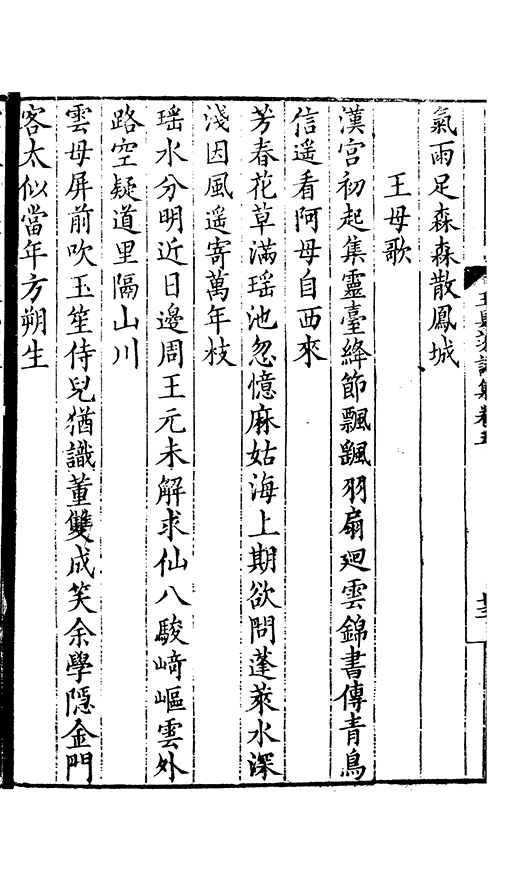 氣雨足森森散鳳城
王母歌
漢宮初起集靈臺絳節飄颻羽扇廻雲錦書傳青鳥
信遥看阿母自西來
芳春花草滿瑶池忽憶麻姑海上期欲問蓬萊水深
淺因風遥寄萬年枝
瑶水分明近日邊周王元未解求仙八駿﨑嶇雲外
路空疑道里隔山川
雲母屏前吹玉笙侍兒猶識董雙成笑余學隠金門
客太似當年方朔生